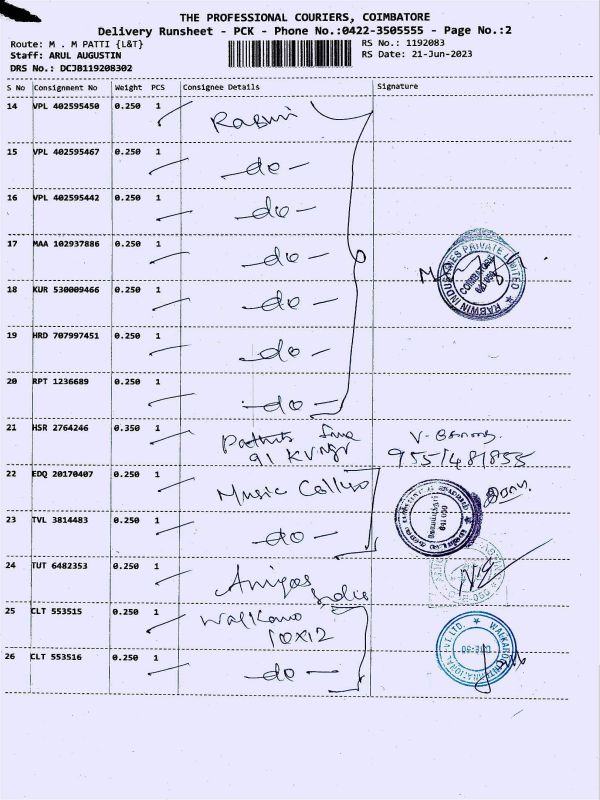 THE PROFESSIONAL COURIERS, COIMBATORE
Delivery Runsheet - PCK - Phone No.:0422-3505555 - Page No.:2
Route: M . M PATTI {L&T}
RS No.: 1192083
Staff: ARUL AUGUSTIN
RS Date: 21-Jun-2023
DRS No.: DCJB119208302
S No Consignment No Weight PCS Consignee Details Signature
14 VPL 402595450 0.250 1 Rabwin
15 VPL 402595467 0.250 1 -do-
16 VPL 402595442 0.250 1 -do-
17 MAA 102937886 0.250 1 -do-
RABWIN INDUSTRIES PRIVATE LIMITED
COIMBATORE
641 050
18 KUR 530009466 0.250 1 -do-
19 HRD 707997451 0.250 1 -do-
20 RPT 1236689 0.250 1 -do-
21 HSR 2764246 0.350 1
91 KVngr
22 EDQ 20170407 0.250 1 Music College
641 050
23 TVL 3814483 0.250 1 -do-
24 TUT 6482353 0.250 1 Amigos
25 CLT 553515 0.250 1 Walkaroo
10x12
WALKAROO INTERNATIONAL PVT. LTD.
26 CLT 553516 0.250 1 -do-